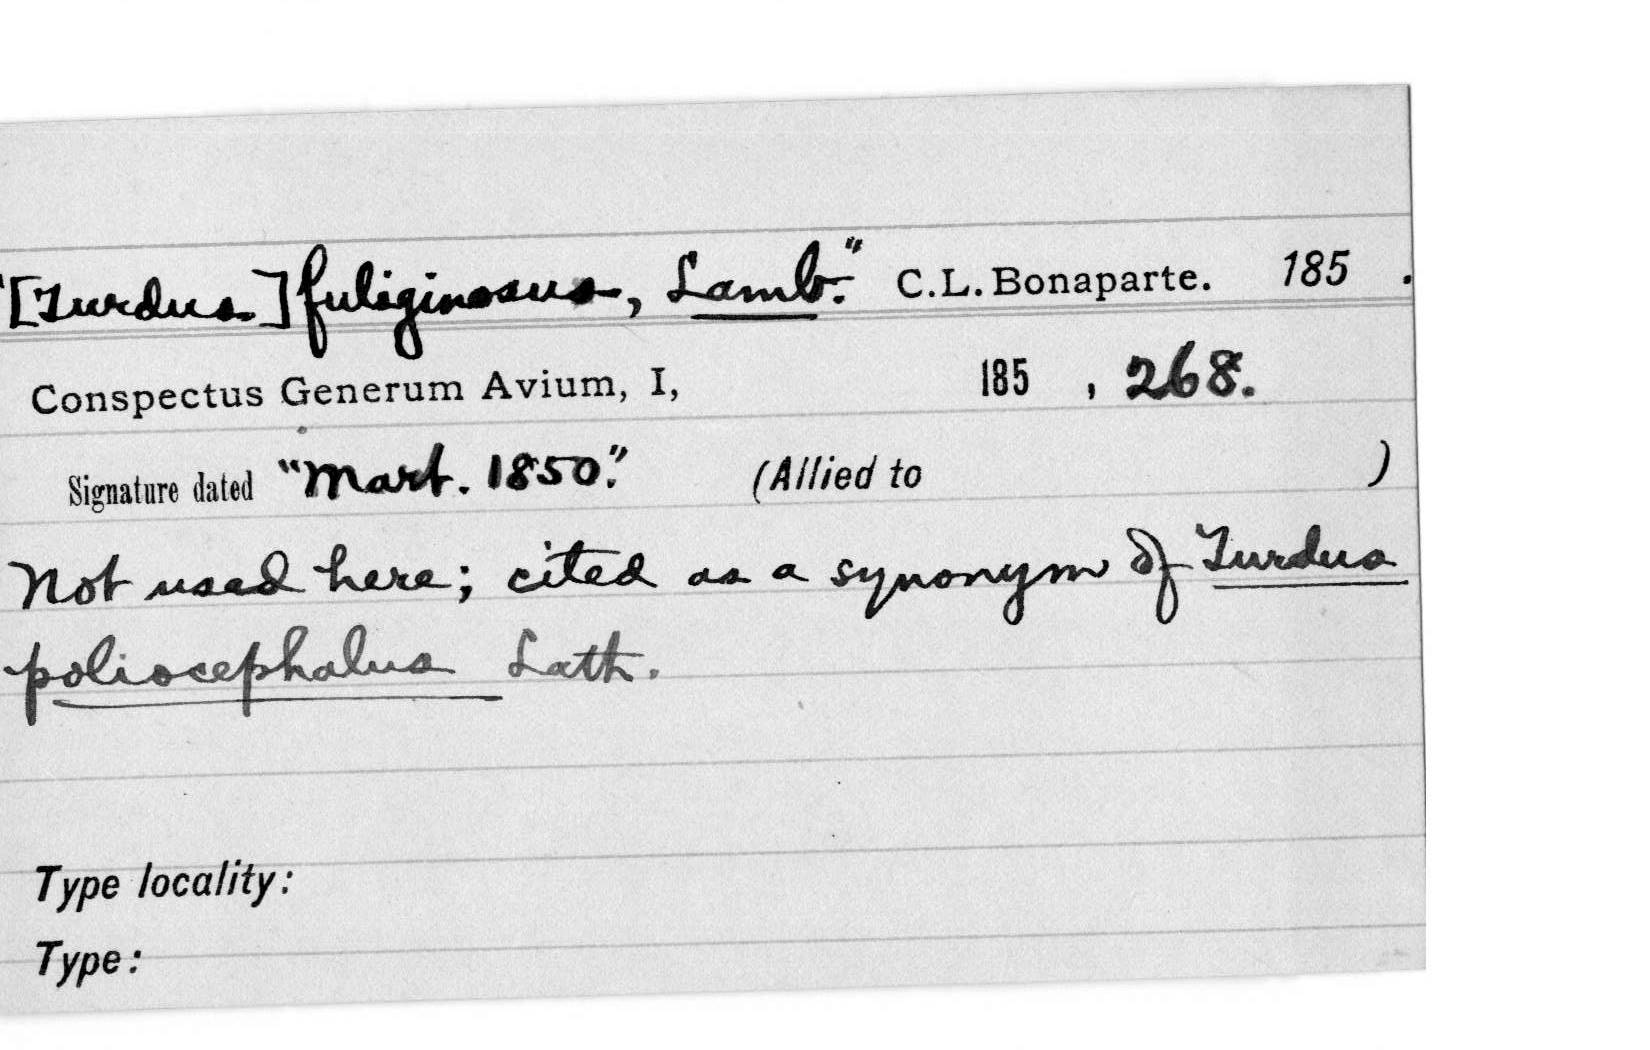 "[Turdus] fuliginosus, Lamb." C.L. Bonaparte. 185 .
Conspectus Generum Avium, I, 185 , 268.
Signature dated "Mart. 1850." (Allied to )
Not used here; cited as a synonym of Turdus
poliocephalus Lath.
Type locality:
Type: